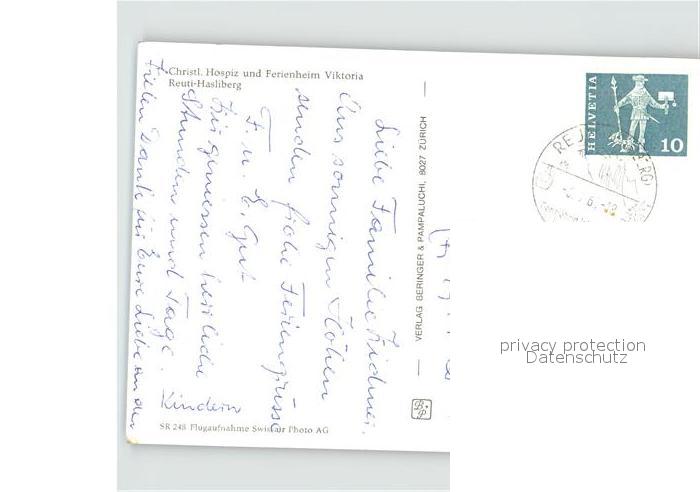 Christl. Hospiz und Ferienheim Viktoria
Reuti-Hasliberg
Liebe Familie
Aus sonnigen Höhen
senden frohe Feriengrüsse
F. u. E. Gut
Wir geniessen herrliche
Stunden und Tage.
Vielen Dank für Eure Liebe an den
Kindern
SR 248 Flugaufnahme Swissair Photo AG
VERLAG BERINGER & PAMPALUCHI, 8027 ZÜRICH
B.P
HELVETIA
10
privacy protection
Datenschutz